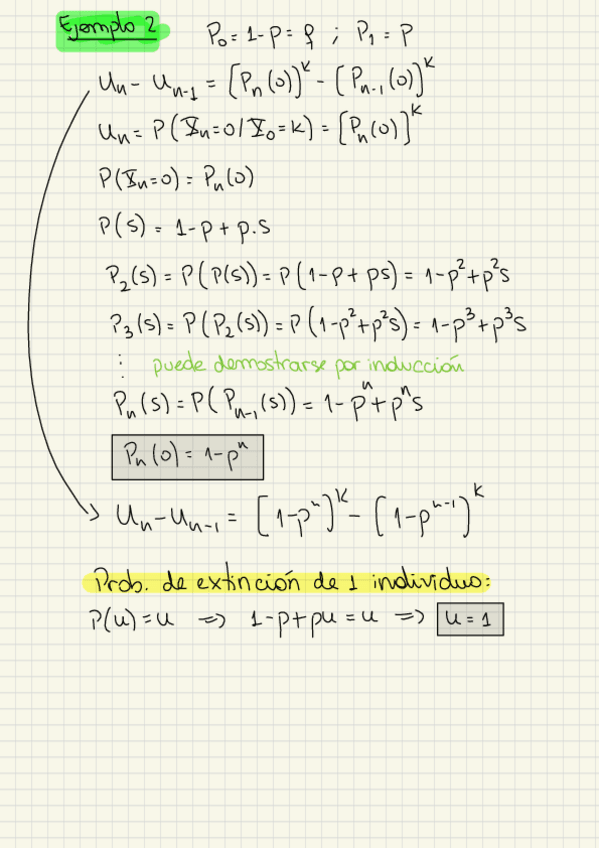 Ejemplo 2 P₀ = 1-p = q ; P₁ = p
Uₙ - Uₙ₋₁ = [Pₙ(0)]ᵏ - [Pₙ₋₁(0)]ᵏ
Uₙ = P(Xₙ=0/X₀=k) = [Pₙ(0)]ᵏ
P(Xₙ=0) = Pₙ(0)
P(s) = 1-p+p.s
P₂(s) = P(P(s)) = P(1-p+ps) = 1-p²+p²s
P₃(s) = P(P₂(s)) = P(1-p²+p²s) = 1-p³+p³s
⋮ puede demostrarse por inducción
Pₙ(s) = P(Pₙ₋₁(s)) = 1-pⁿ+pⁿs
Pₙ(0) = 1-pⁿ
Uₙ-Uₙ₋₁ = [1-pⁿ]ᵏ - [1-pⁿ⁻¹]ᵏ
Prob. de extinción de 1 individuo:
P(u) = u ⇒ 1-p+pu = u ⇒ u = 1